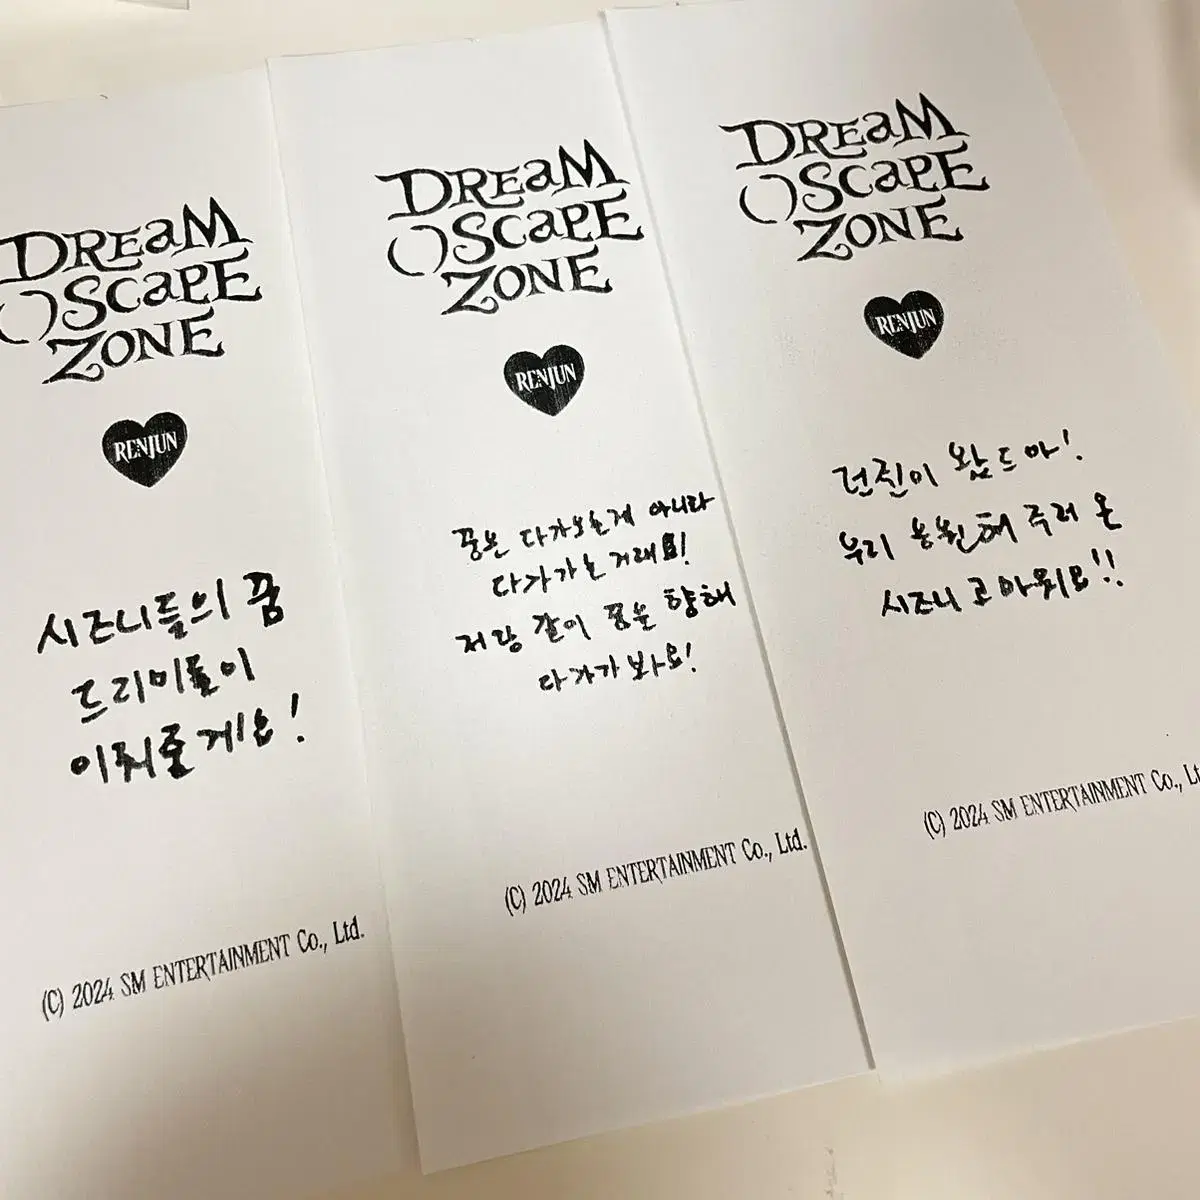 DREAM
()SCAPE
ZONE
RENJUN
시즈니들의 꿈
드리미들이
이뤄줄게요!
(C) 2024 SM ENTERTAINMENT Co., Ltd.
DREAM
()SCAPE
ZONE
RENJUN
꿈은 다가오는게 아니라
다가가는 거래요!
저랑 같이 꿈을 향해
다가가 봐요!
(C) 2024 SM ENTERTAINMENT Co., Ltd.
DREAM
()SCAPE
ZONE
RENJUN
런쥔이 왔드아!
우리 응원해 주러 온
시즈니 고마워요!!
(C) 2024 SM ENTERTAINMENT Co., Lt